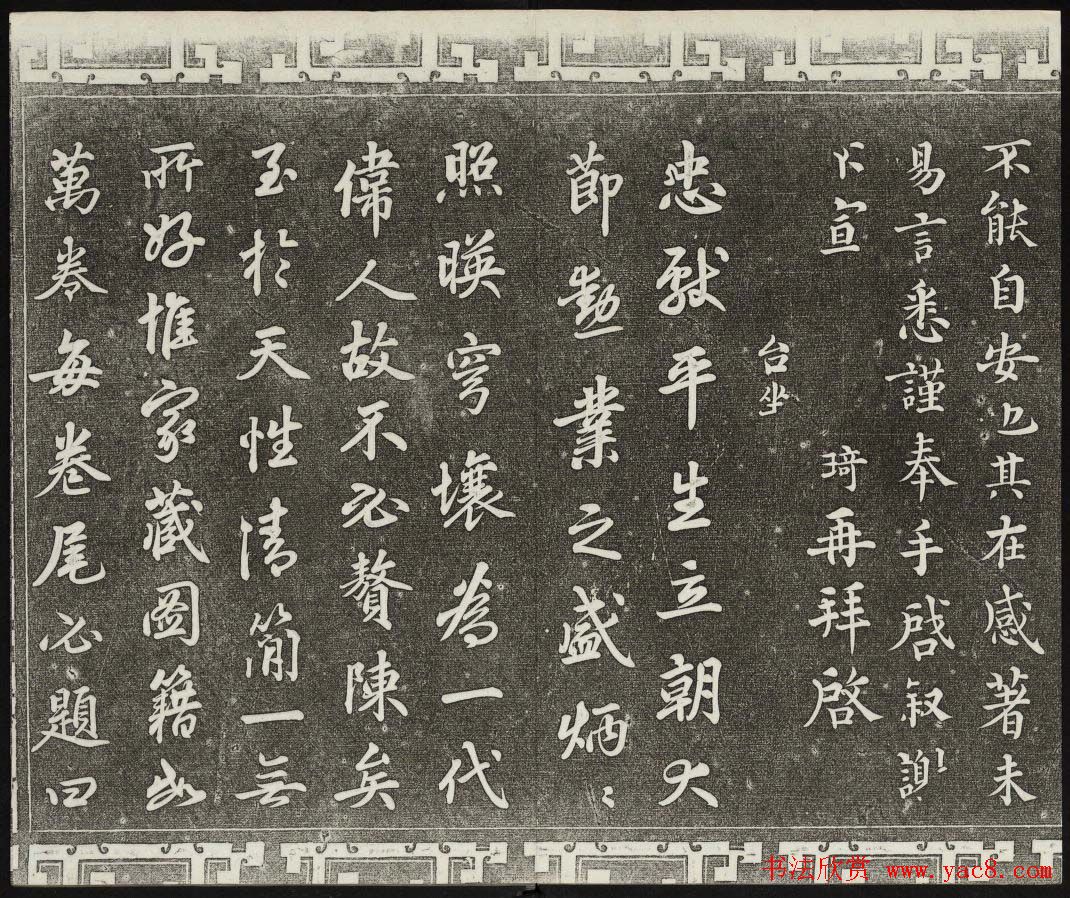 不能自安也其在感著未
易言悉謹奉手啓叙謝
不宣 琦再拜啓
台坐
忠獻平生立朝大
節勳業之盛炳〻
照暎穹壤為一代
偉人故不必贅陳矣
至於天性清簡一無
所好惟家藏圖籍
萬卷每卷尾必題曰
书法欣赏 www.yac8.com